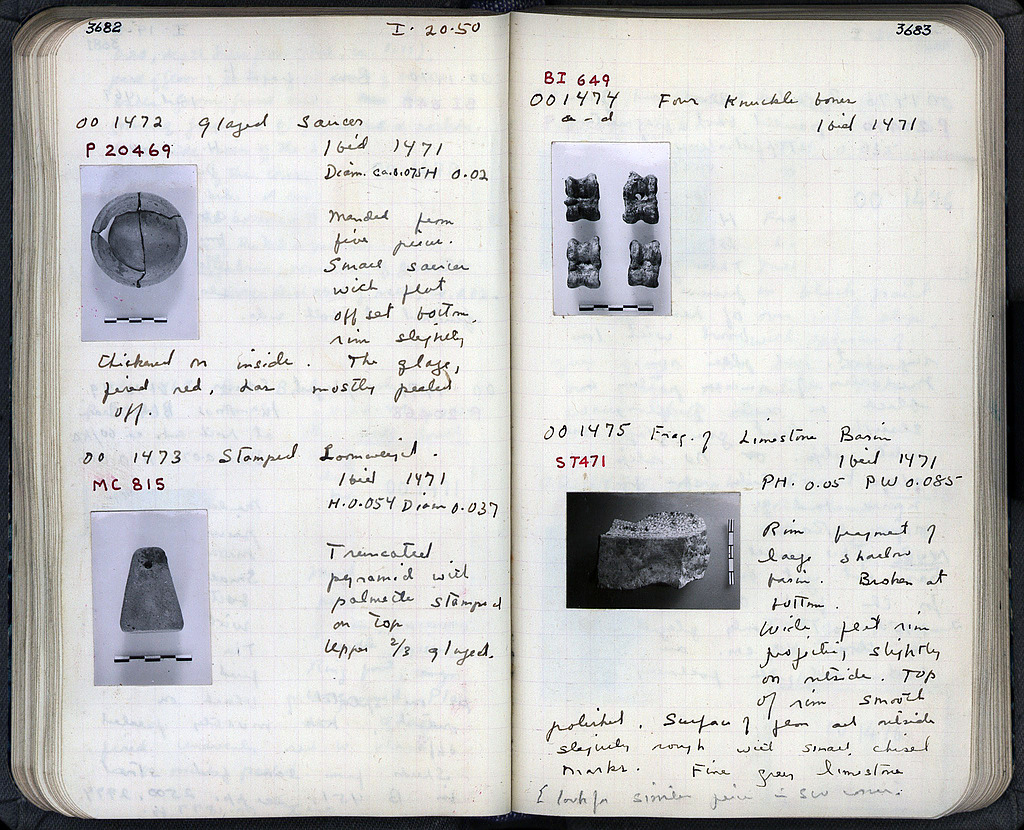 3682
I. 20.50
OO 1472 Glazed Saucer
P 20469
Ibid 1471
Diam. ca. 0.075 H 0.02
Mended from
five pieces.
Small saucer
with flat
off set bottom.
rim slightly
thickened on inside. The glaze,
fired red, has mostly peeled
off.
OO 1473 Stamped Loomweight.
MC 815
Ibid 1471
H. 0.054 Diam 0.037
Truncated
pyramid with
palmette stamped
on top
Upper 2/3 glazed.
3683
BI 649
OO 1474 Four Knuckle bones
a-d
Ibid 1471
OO 1475 Frag. of Limestone Basin
ST 471
Ibid 1471
PH. 0.05 PW 0.085
Rim fragment of
large shallow
basin. Broken at
bottom.
Wide, flat rim
projecting slightly
on outside. Top
of rim smooth
polished. Surface of floor and outside
slightly rough with small chisel
marks. Fine grey limestone
[look for similar piece in SW corner.